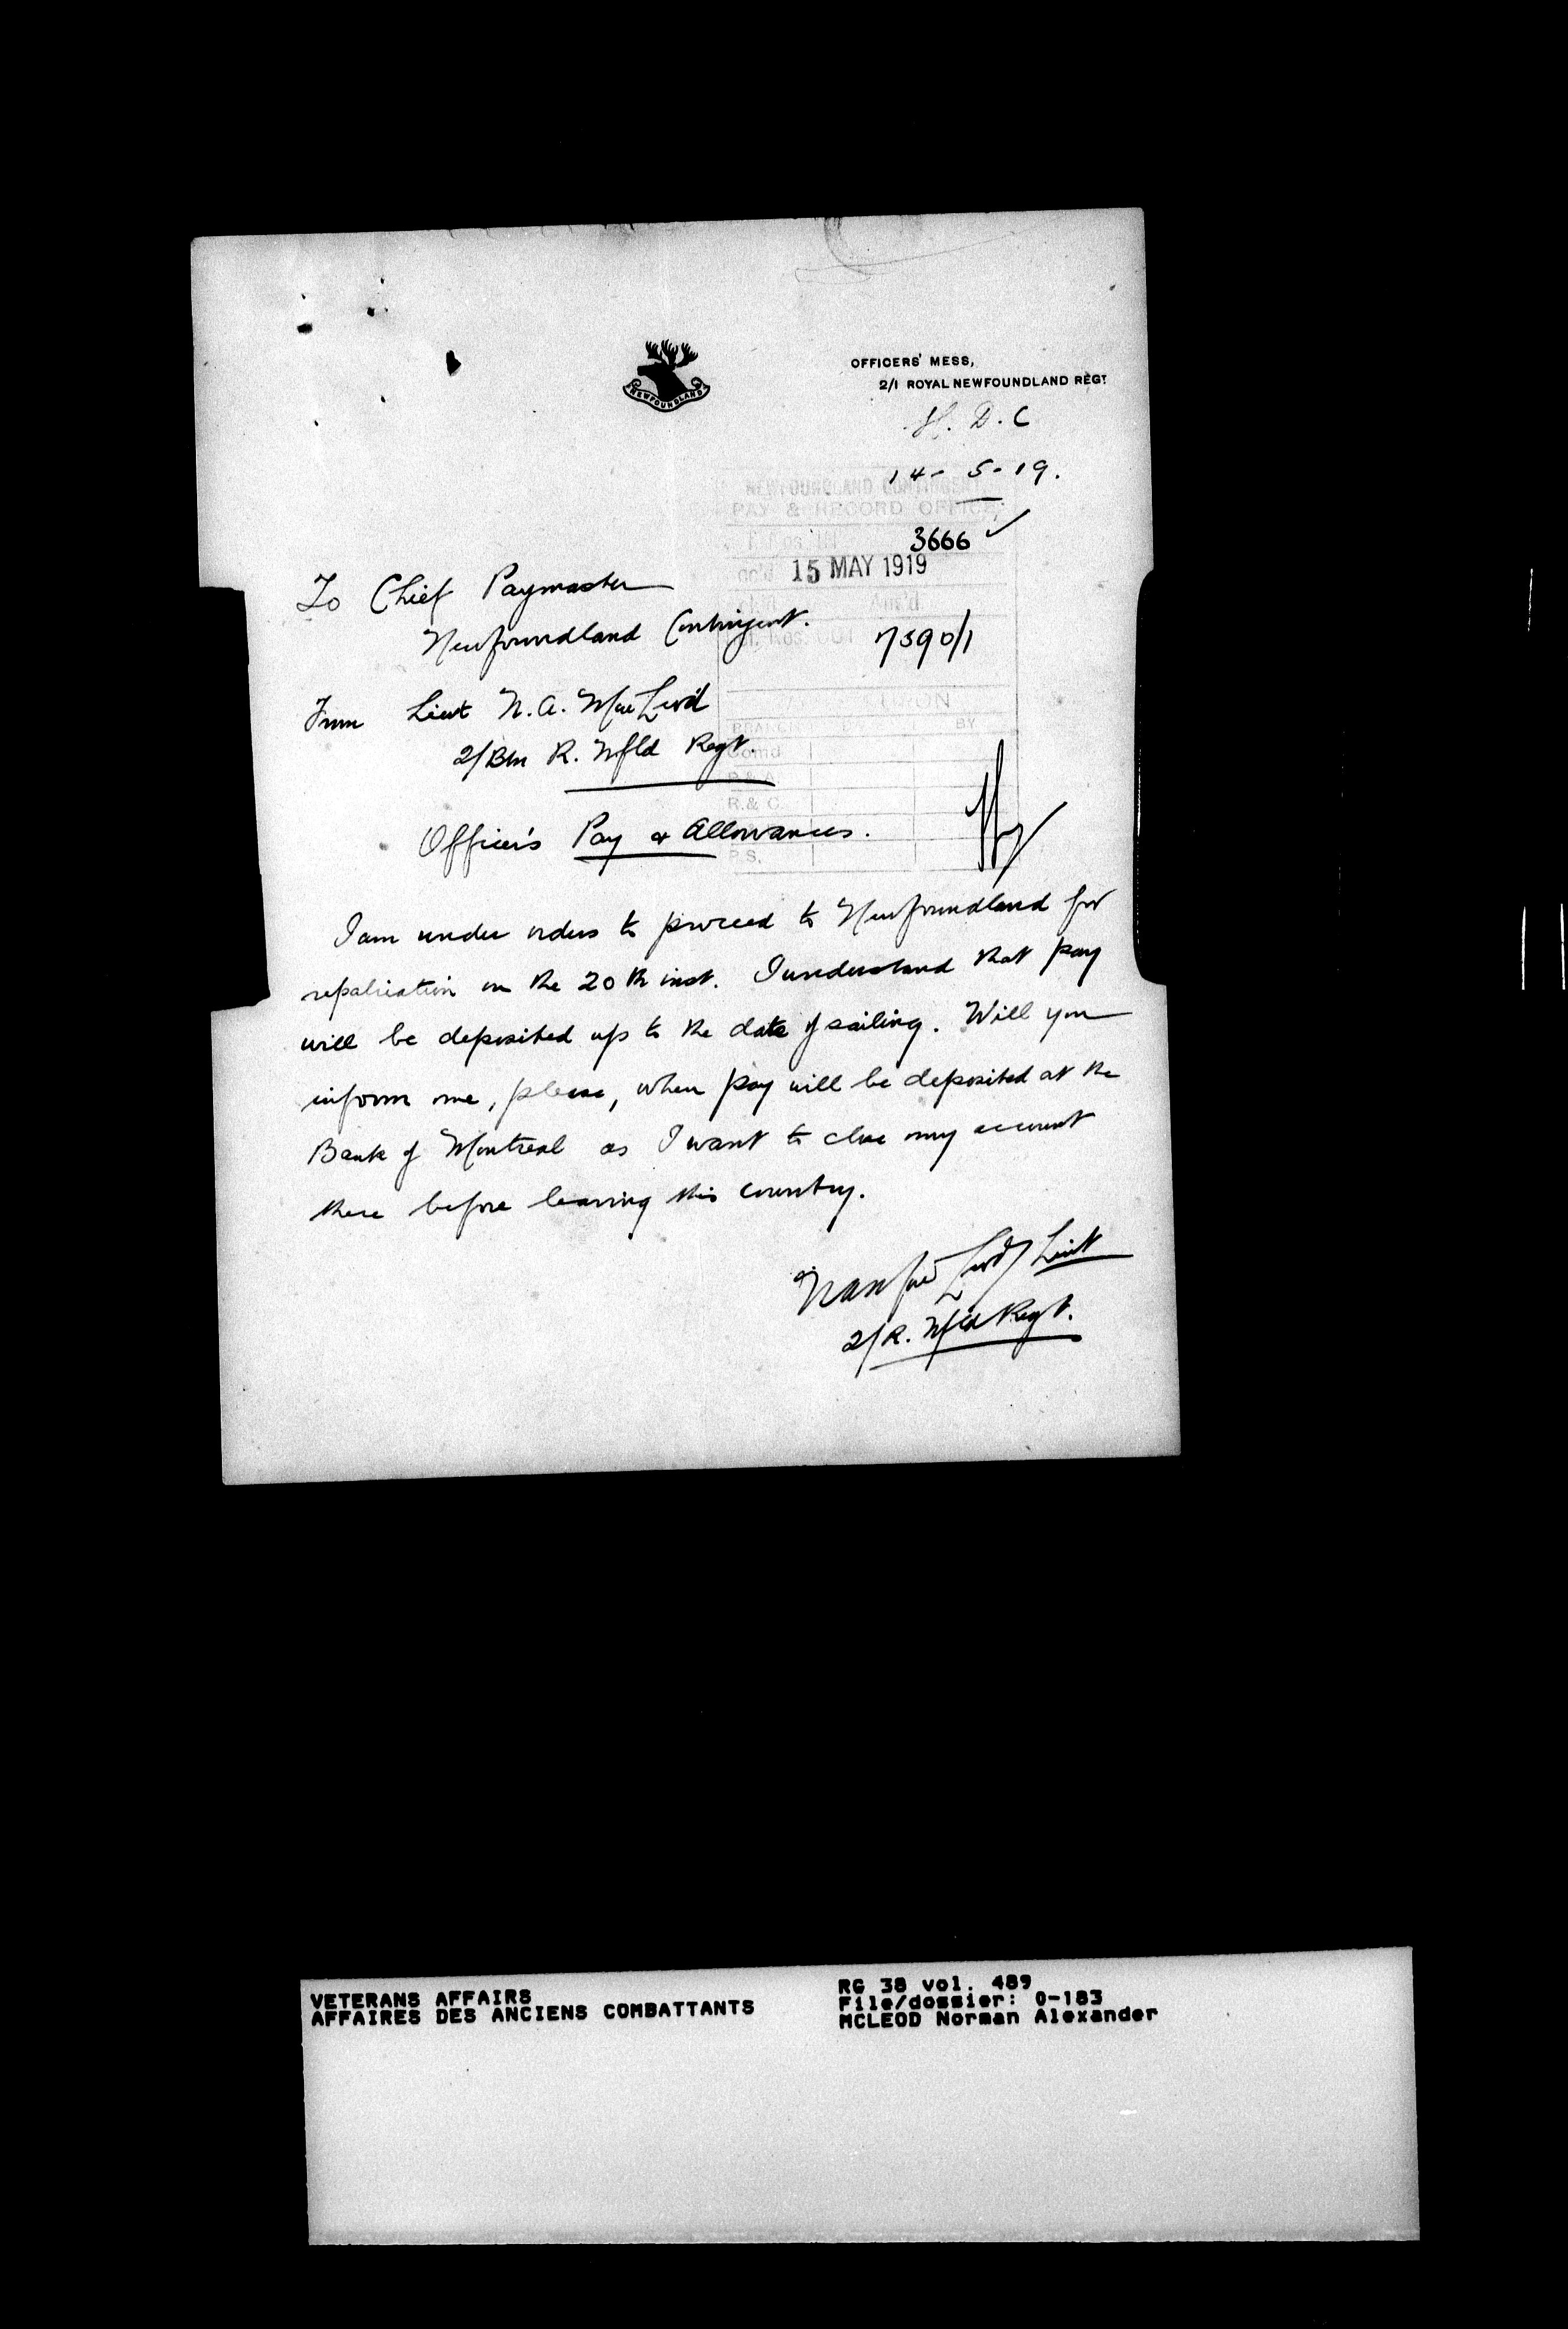 NEWFOUNDLAND
OFFICERS' MESS,
2/1 ROYAL NEWFOUNDLAND REGT
H. D. C
14-5-19.
NEWFOUNDLAND CONTINGENT
PAY & RECORD OFFICE,
3666 ✓
15 MAY 1919
To Chief Paymaster
Newfoundland Contingent.
7390/1
From Lieut N. A. MacLeod
2/Btn R. Nfld Regt.
BY
R. & C.
P.S.
Officer's Pay & Allowances.
I am under orders to proceed to Newfoundland for
repatriation on the 20th inst. I understand that pay
will be deposited up to the date of sailing. Will you
inform me, please, when pay will be deposited at the
Bank of Montreal as I want to close my account
there before leaving this country.
NAMacLeod Lieut
2/R. Nfld Regt.
VETERANS AFFAIRS
AFFAIRES DES ANCIENS COMBATTANTS
RG 38 vol. 489
File/dossier: 0-183
MCLEOD Norman Alexander